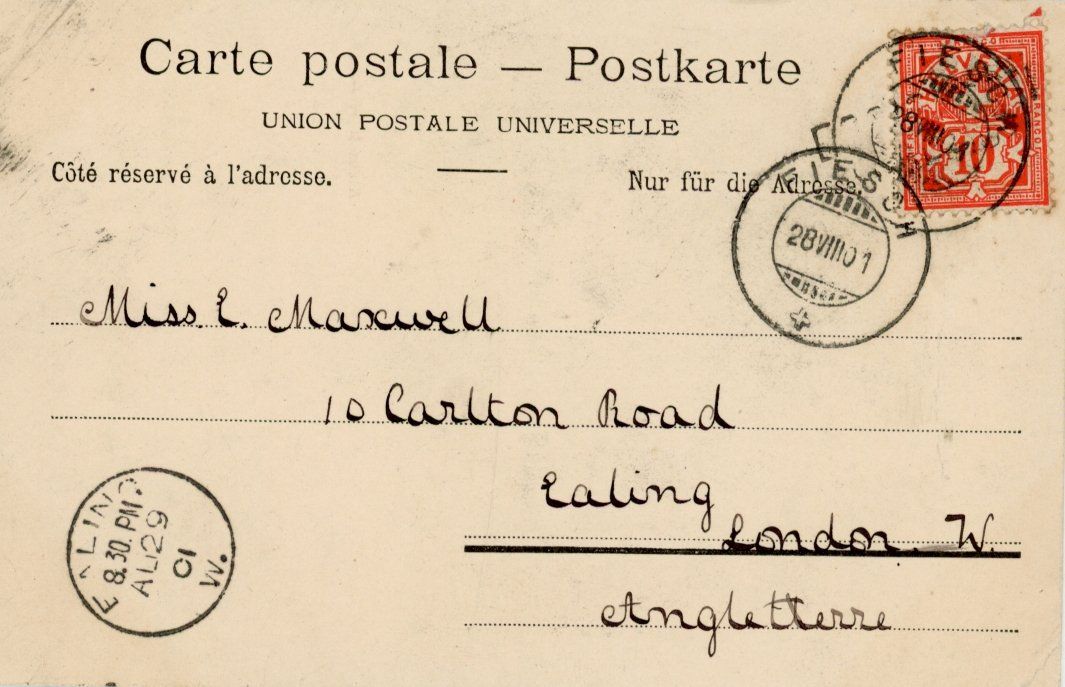 Carte postale — Postkarte
UNION POSTALE UNIVERSELLE
Côté réservé à l'adresse.
Nur für die Adresse.
FRANCO
10
FIESCH
28 VIII 01
FIESCH
28 VIII 01
Miss. E. Maxwell
10 Carlton Road
Ealing
London. W.
Angletterre
EALING
8.30. PM
AU 29
01
W.